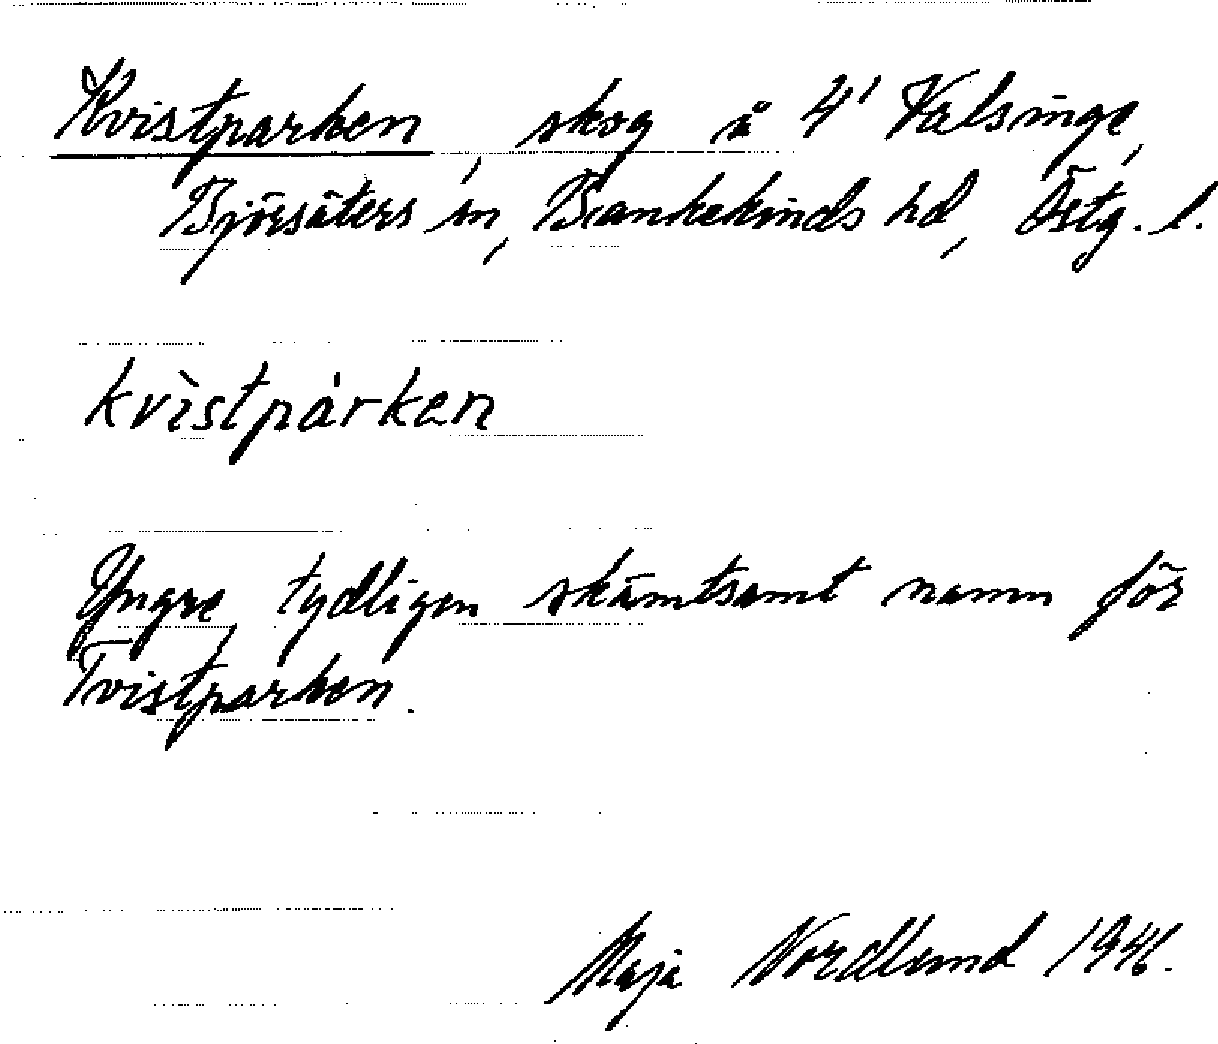 Kvistparken, skog å 4' Valsinge,
Björsäters sn, Bankekinds hd, Östg. l.
kvìstpárken
Yngre, tydligen skämtsamt namn för
Tvistparken.
Maja Nordlund 1946.